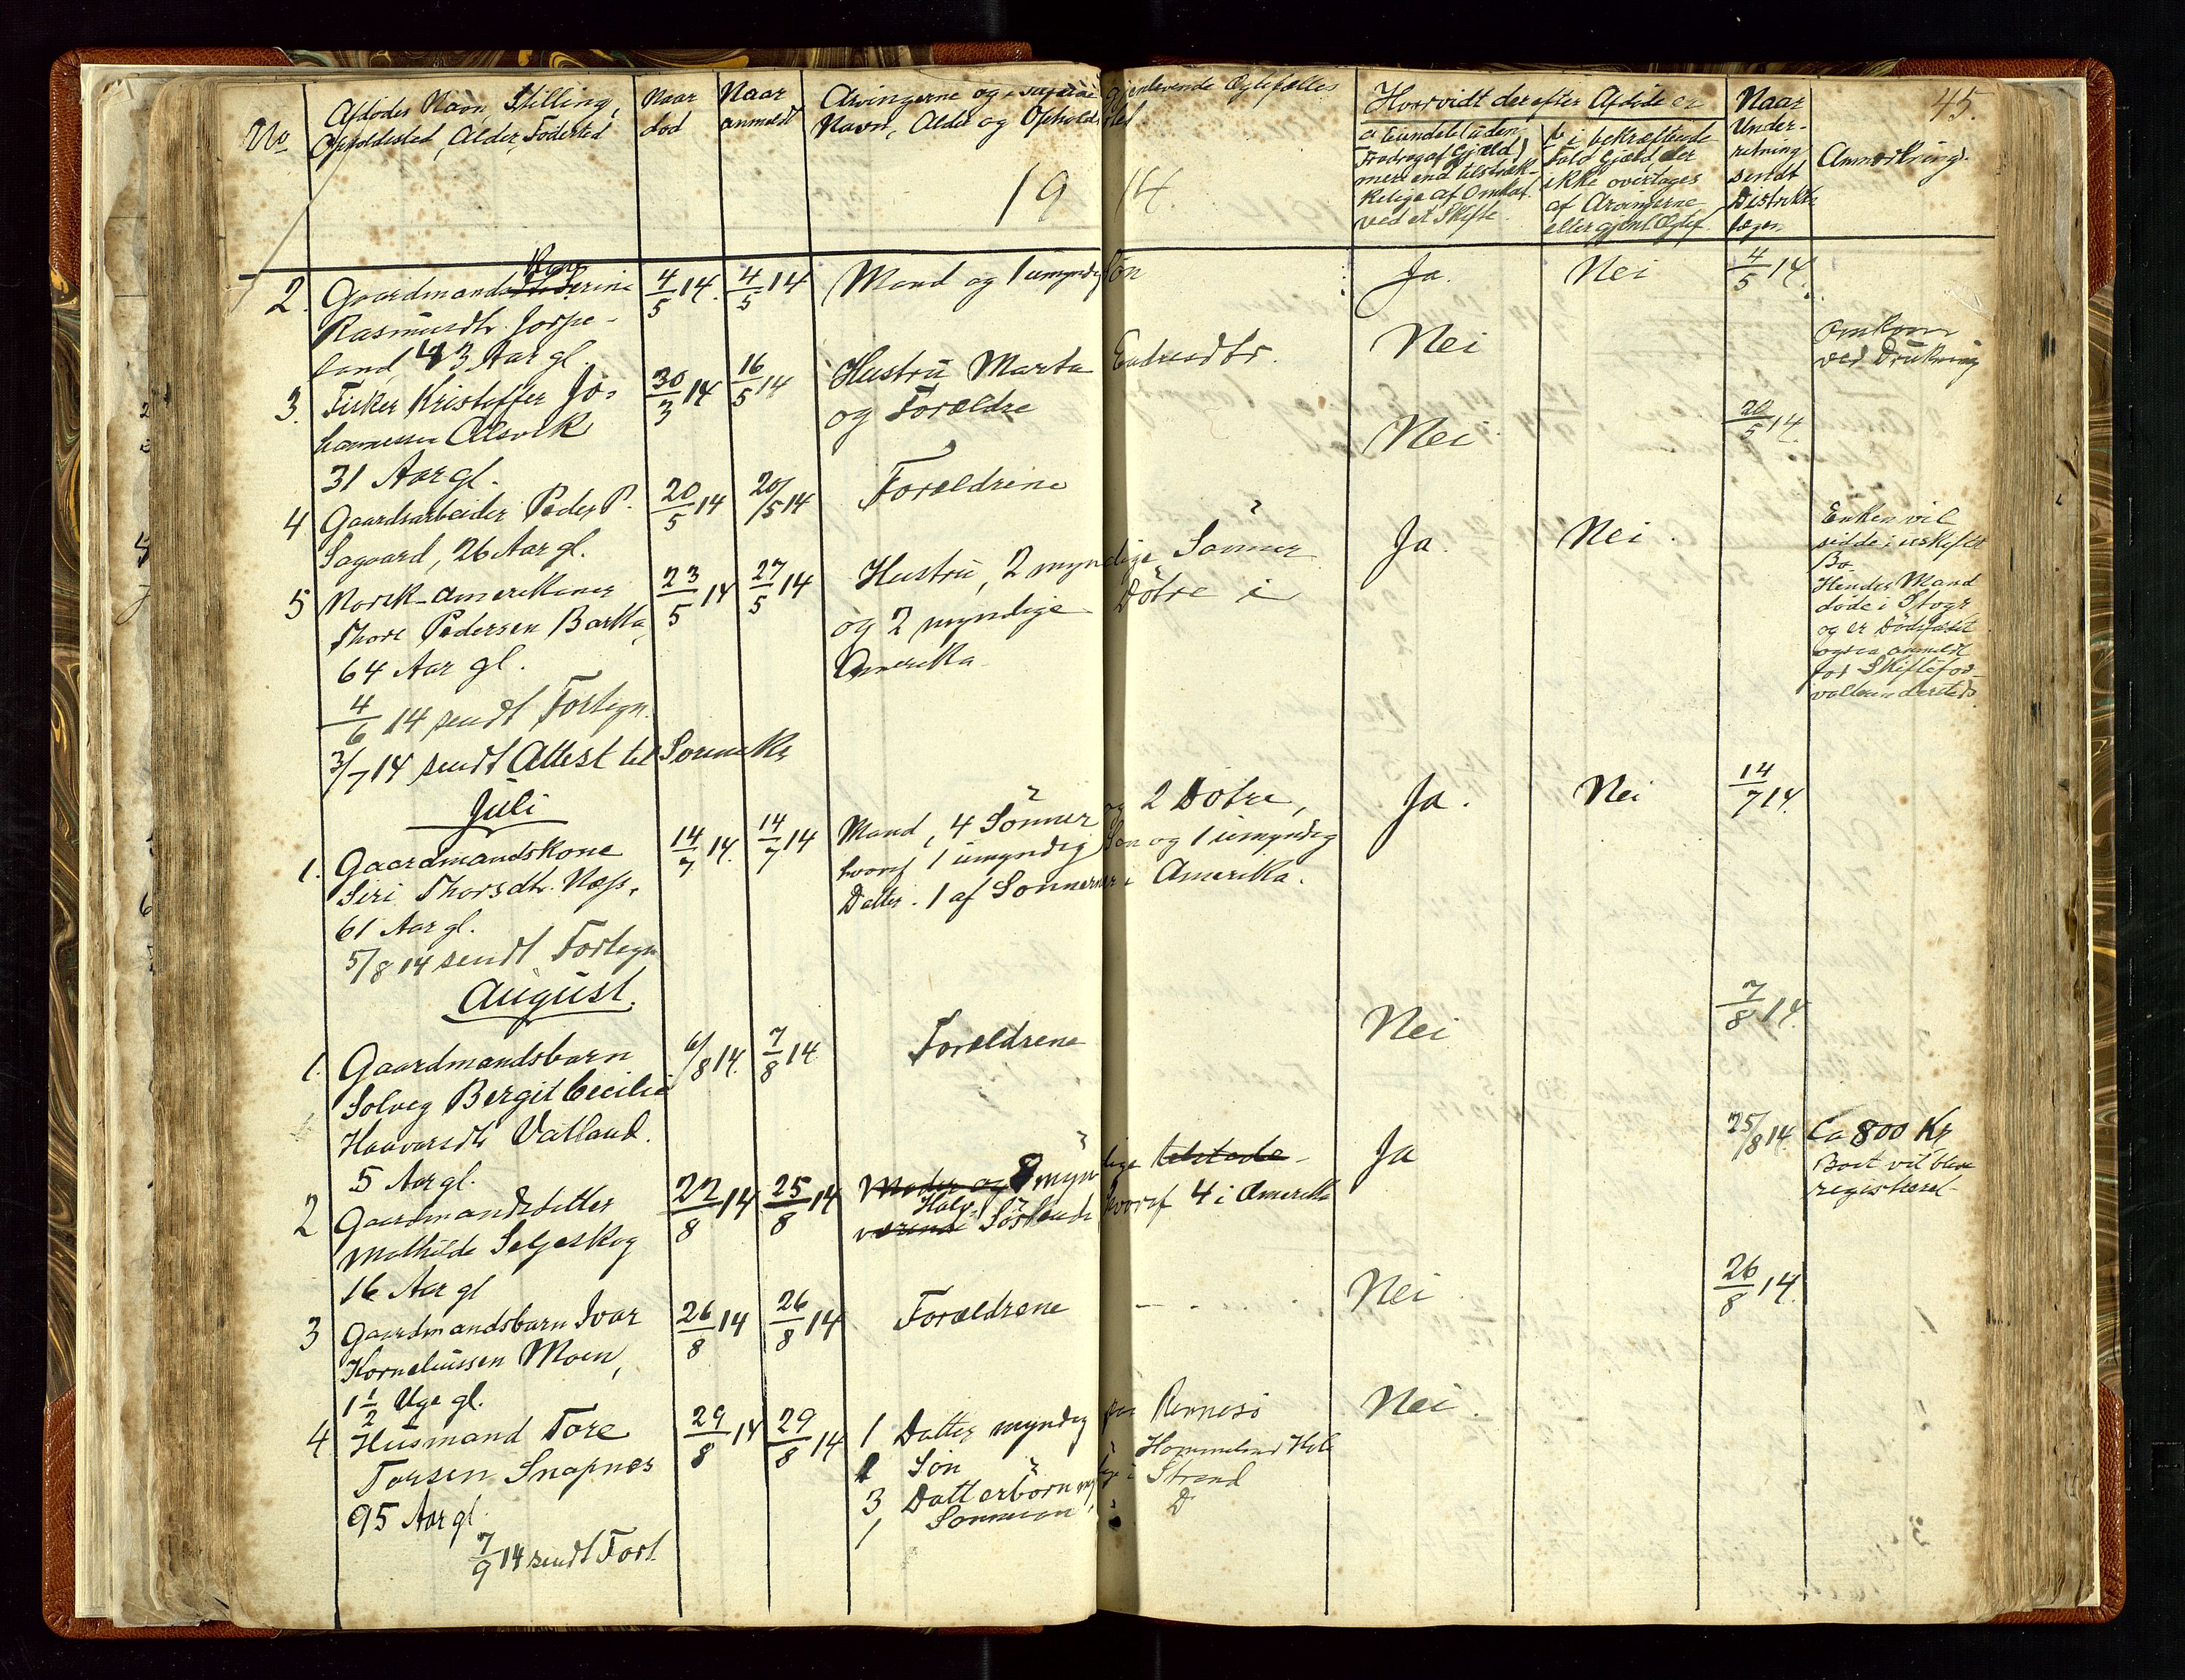 45.
No
Afdødes Navn, Stilling,
Opholdssted, Alder, Fødested
Naar
død
Naar
anmeldt
Arvingerne og gjenlevende Ægtefælles
Navn, Alder og Opholdssted
Hvorvidt der efter Afdøde er
a Eiendele uden
Fradrag af Gjæld
mere end tilstræk-
kelige af Omkost.
ved et Skifte
b i bekræftende
Fald Gjæld, der
ikke overtages
af Arvingerne
eller gjenl. Ægtef.
Naar
Under-
retning
sendt
Distrikts
lægen
Anmerkning.
1914.
2. Gaardmandskone Serine
Rasmusdtr. Jørpe-
land 43 Aar gl.
4/5 14. 4/5 14 Mand og 1 umyndig Søn Ja. Nei 4/5 14.
3. Fisker Kristoffer Jo-
hannessen Alsvik
31 Aar gl.
30/3 14 16/5 14 Hustru Marta Endresdtr.
og Forældre
Nei
Omkom
ved Drukning
4 Gaardsarbeider Peder P.
Sagaard, 26 Aar gl.
20/5 14 20/5 14 Forældrene Nei 20/5 14.
5 Norsk-Amerikaner
Thore Pedersen Barka,
64 Aar gl.
23/5 14 27/5 14 Hustru, 2 myndige Sønner
og 2 myndige Døtre i
Amerika
Ja. Nei.
Enken vil
sidde i uskiftet
Bo.
Hendes Mand
døde i Stvgr
og er Dødsfaldet
ogsaa anmeldt
for Skiftefor-
valteren dersteds.
4/6 14 sendt Fortegn.
3/7 14 sendt Attest til Sorenskr
Juli
1. Gaardmandskone
Siri Thorsdtr. Næss,
61 Aar gl.
14/7 14. 14/7 14 Mand, 4 Sønner og 2 Døtre,
hvoraf 1 umyndig Søn og 1 umyndig
Datter. 1 af Sønnerne i Amerika.
Ja. Nei 14/7 14.
5/8 14 sendt Fortegn
August.
1. Gaardmandsbarn
Solveg Bergit Cecilie
Haavarsdtr Vatland.
5 Aar gl.
6/8 14. 7/8 14 Forældrene Nei 7/8 14.
2 Gaardmandsdatter
Mathilde Seljeskog
16 Aar gl
22/8 14 25/8 14 Moder og 8 myndige tilstede-
værende Halv Søskende hvoraf 4 i Amerika
Ja 25/8 14.
Ca 800 Kr
Boet vil blive
registreret
3 Gaardmandsbarn Ivar
Korneliussen Moen,
1 1/2 Uge gl.
26/8 14 26/8 14 Forældrene Nei 26/8 14.
4 Husmand Tore
Torsen Snapnes
95 Aar gl.
29/8 14 29/8 14 1 Datter myndig paa Rennesø
1 Søn
3 Datterbørn i Strand
1 Sønnesøn D
Nei.
7/9 14 sendt Fort